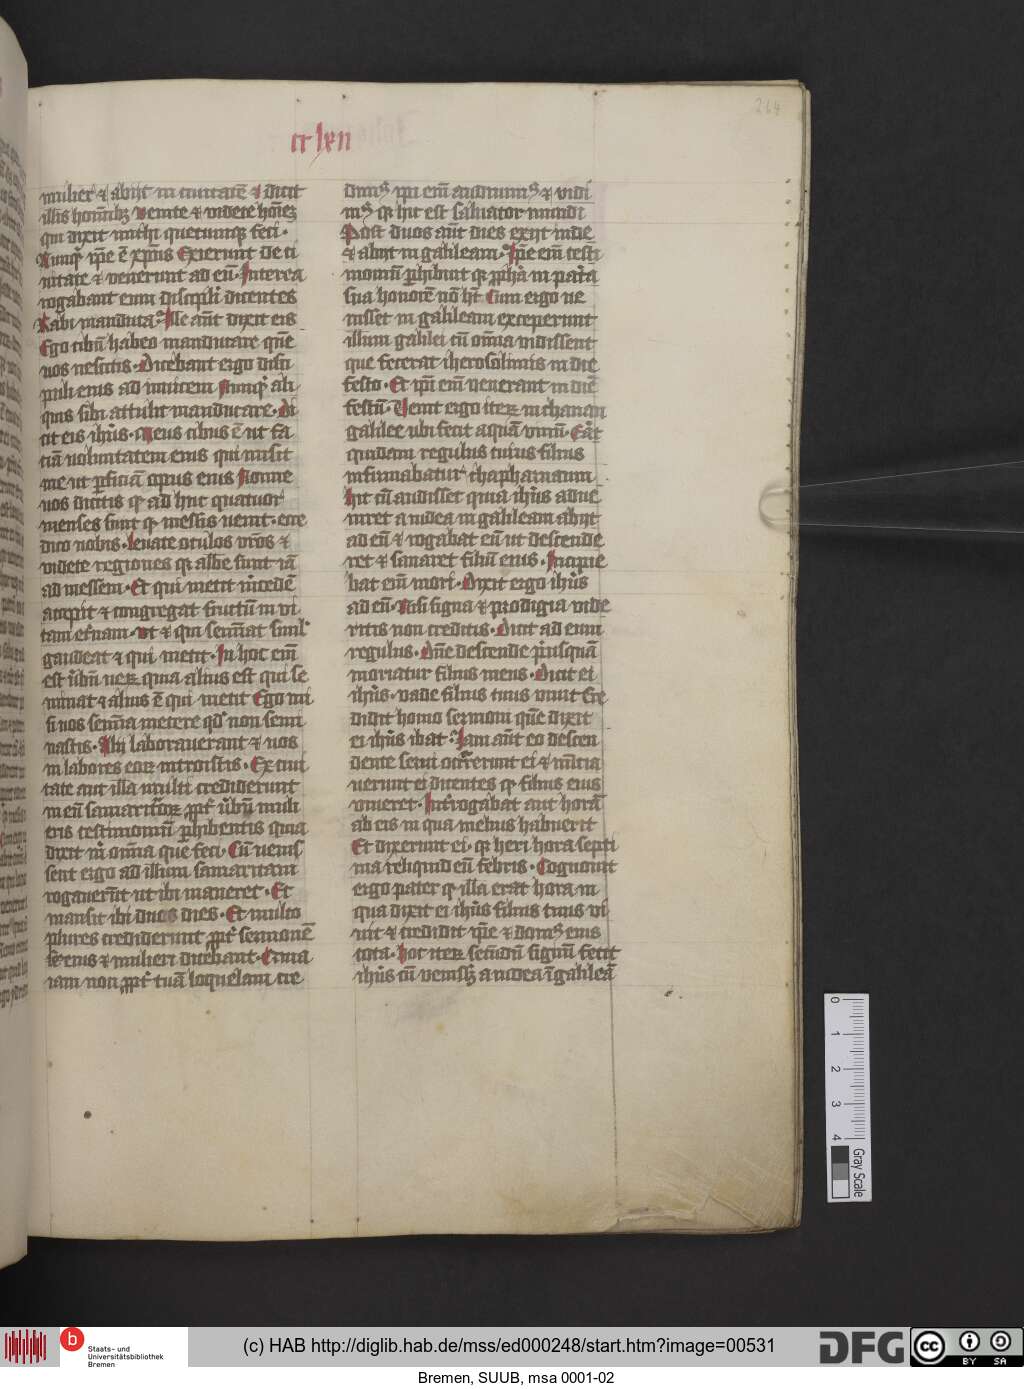 264
cc lxii
mulier ⁊ abijt in ciuitatē ⁊ dicit
illis hominibꝫ venite ⁊ videte hoīeꝫ
qui dixit michi quecumqꝫ feci ·
Nunqͥd ip̄e ē xp̄us Exierunt de ci
uitate ⁊ venerunt ad eū · Interea
rogabant eum discipli dicentes
Rabi manduca · Ille aūt dixit eis
Ego cibū habeo manducare quē
uos nescitis · Dicebant ergo disci
puli eius ad inuicem Nunqͥd ali
quis sibi attulit manducare · Di
cit eis ihūs · Meus cibus ē ut fa
ciā uoluntatem eius qui misit
me ut ꝑficiā opus eius Nonne
uos dicitis qꝫ ad huc quatuor
menses sunt ⁊ messis uenit · ecce
dico uobis · leuate oculos vr̄os ⁊
videte regiones qꝫ albe sunt iā
ad messem · Et qui metit m̄cedē
accipit ⁊ congregat fructum in vi
tam et̄nam · vt ⁊ qui semīat simͥl
gaudeat ⁊ qui metit · In hoc eīm
est v̄bū ueꝝ quia alius est qui se
minat ⁊ alius ē qui metit Ego mi
si uos sem̄ia metere qd̓ non semi
nastis · Alij laborauerant ⁊ uos
in labores eoꝝ introistis · Ex ciui
tate aut illa multi crediderunt
in eū samaritanoꝝ ꝓpt̓ v̄bū muli
eris testimoniū ꝑhibentis quia
dixit m̄ omīa que feci · Cū uenis
sent ergo ad illum samaritani
rogauerūt ut ibi maneret · Et
mansit ibi duos dies · Et multo
plures crediderunt ꝓpt̓ sermonē
eius ⁊ mulieri dicebant · Quia
iam non ꝓpt̓ tuā loquelam cre
dimꝰ ipi eīm audiuimꝰ ⁊ vidi
mꝰ qꝫ hic est saluator mundi
Post duos aūt dies exijt inde
⁊ abijt in galileam · Ip̄e eīm testi
monium ꝑhibuit qꝫ ꝓpha in pat̓a
sua honorē nō ht̄ Cum ergo ue
nisset in galileam exceperunt
illum galilei cū omīa vidissent
que fecerat iherosolimis in die
festo · Et ipī eīm uenerant in diē
festū · Uenit ergo iteꝝ in chanan
galilee ubi fecit aquā vinū · Erat
quidam regulus cuius filius
infirmabatur chapharnaum
Hic cū audisset quia ihūs adue
niret a iudea in galileam abijt
ad eū ⁊ rogabat eū ut descende
ret ⁊ sanaret filiū eius · Incipie
bat eīm mori · Dixit ergo ihūs
ad eū · Nisi signa ⁊ prodigia vide
ritis non creditis · Dicit ad eum
regulus · Dn̄e descende p̓usquā
moriatur filius meus · Dicit ei
ihūs · vade filius tuus viuit Cre
didit homo sermoni quē dixit
ei ihūs ibat · Iam aūt eo descen
dente serui occ̓rerunt ei ⁊ nūcia
uerunt ei dicentes qꝫ filius eius
viueret · Int̓rogabat aut horā
ab eis in qua melius habuerit
Et dixerunt ei · qꝫ heri hora septi
ma reliquid eū febris · Cognouit
ergo pater qꝫ illa erat hora in
qua dixit ei ihūs filius tuus vi
uit ⁊ credidit ip̄e ⁊ domꝰ eius
tota · hoc iteꝝ secundū signū fecit
ihūs cū venissꝫ a iudea ī galileā
0
1
2
3
4
Gray Scale
b Staats- und
Universitätsbibliothek
Bremen
(c) HAB http://diglib.hab.de/mss/ed000248/start.htm?image=00531
DFG
cc BY SA
Bremen, SUUB, msa 0001-02